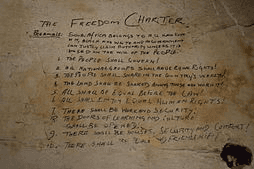 THE FREEDOM CHARTER
Preamble: SOUTH AFRICA BELONGS TO ALL WHO LIVE
IN IT, BLACK AND WHITE AND NO GOVERNMENT
CAN JUSTLY CLAIM AUTHORITY UNLESS IT IS
BASED ON THE WILL OF THE PEOPLE.
1. THE PEOPLE SHALL GOVERN!
2. ALL NATIONAL GROUPS SHALL HAVE EQUAL RIGHTS!
3. THE PEOPLE SHALL SHARE IN THE COUNTRY'S WEALTH!
4. THE LAND SHALL BE SHARED AMONG THOSE WHO WORK IT!
5. ALL SHALL BE EQUAL BEFORE THE LAW!
6. ALL SHALL ENJOY EQUAL HUMAN RIGHTS!
7. THERE SHALL BE WORK AND SECURITY!
8. THE DOORS OF LEARNING AND CULTURE
SHALL BE OPENED!
9. THERE SHALL BE HOUSES, SECURITY AND COMFORT!
10. THERE SHALL BE FRIENDSHIP!